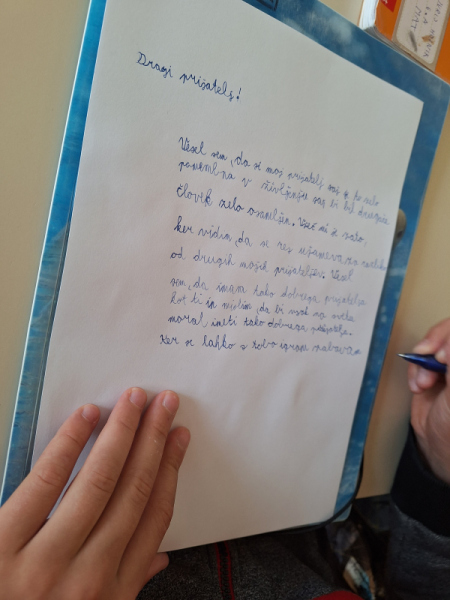 Dragi prijatelj!
Vesel sem, da si moj prijatelj saj je to zelo
pomembno v življenju saj bi bil drugače
človek zelo osamljen. Všeč mi je zato,
ker vidim, da si res
od drugih mojih prijateljev. Vesel
sem, da imam tako dobrega prijatelja
kot ti in mislim, da bi vsak na svetu
moral imeti tako dobrega prijatelja.
Ker se lahko s tabo igram zabavam